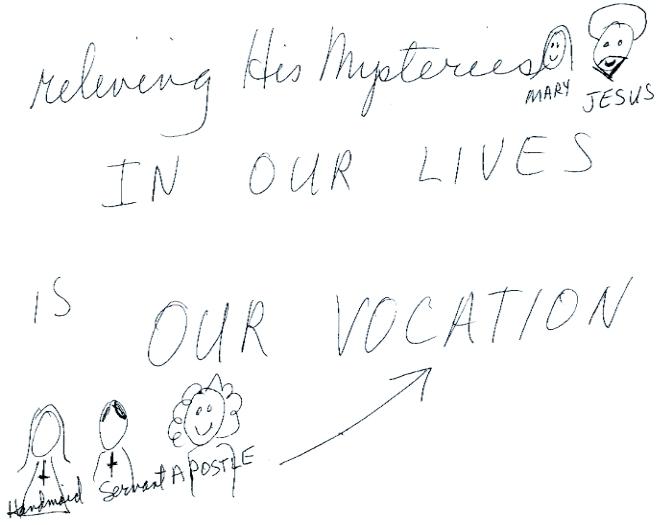 reliving His Mysteries
MARY JESUS
IN OUR LIVES
IS OUR VOCATION
Handmaid Servant APOSTLE